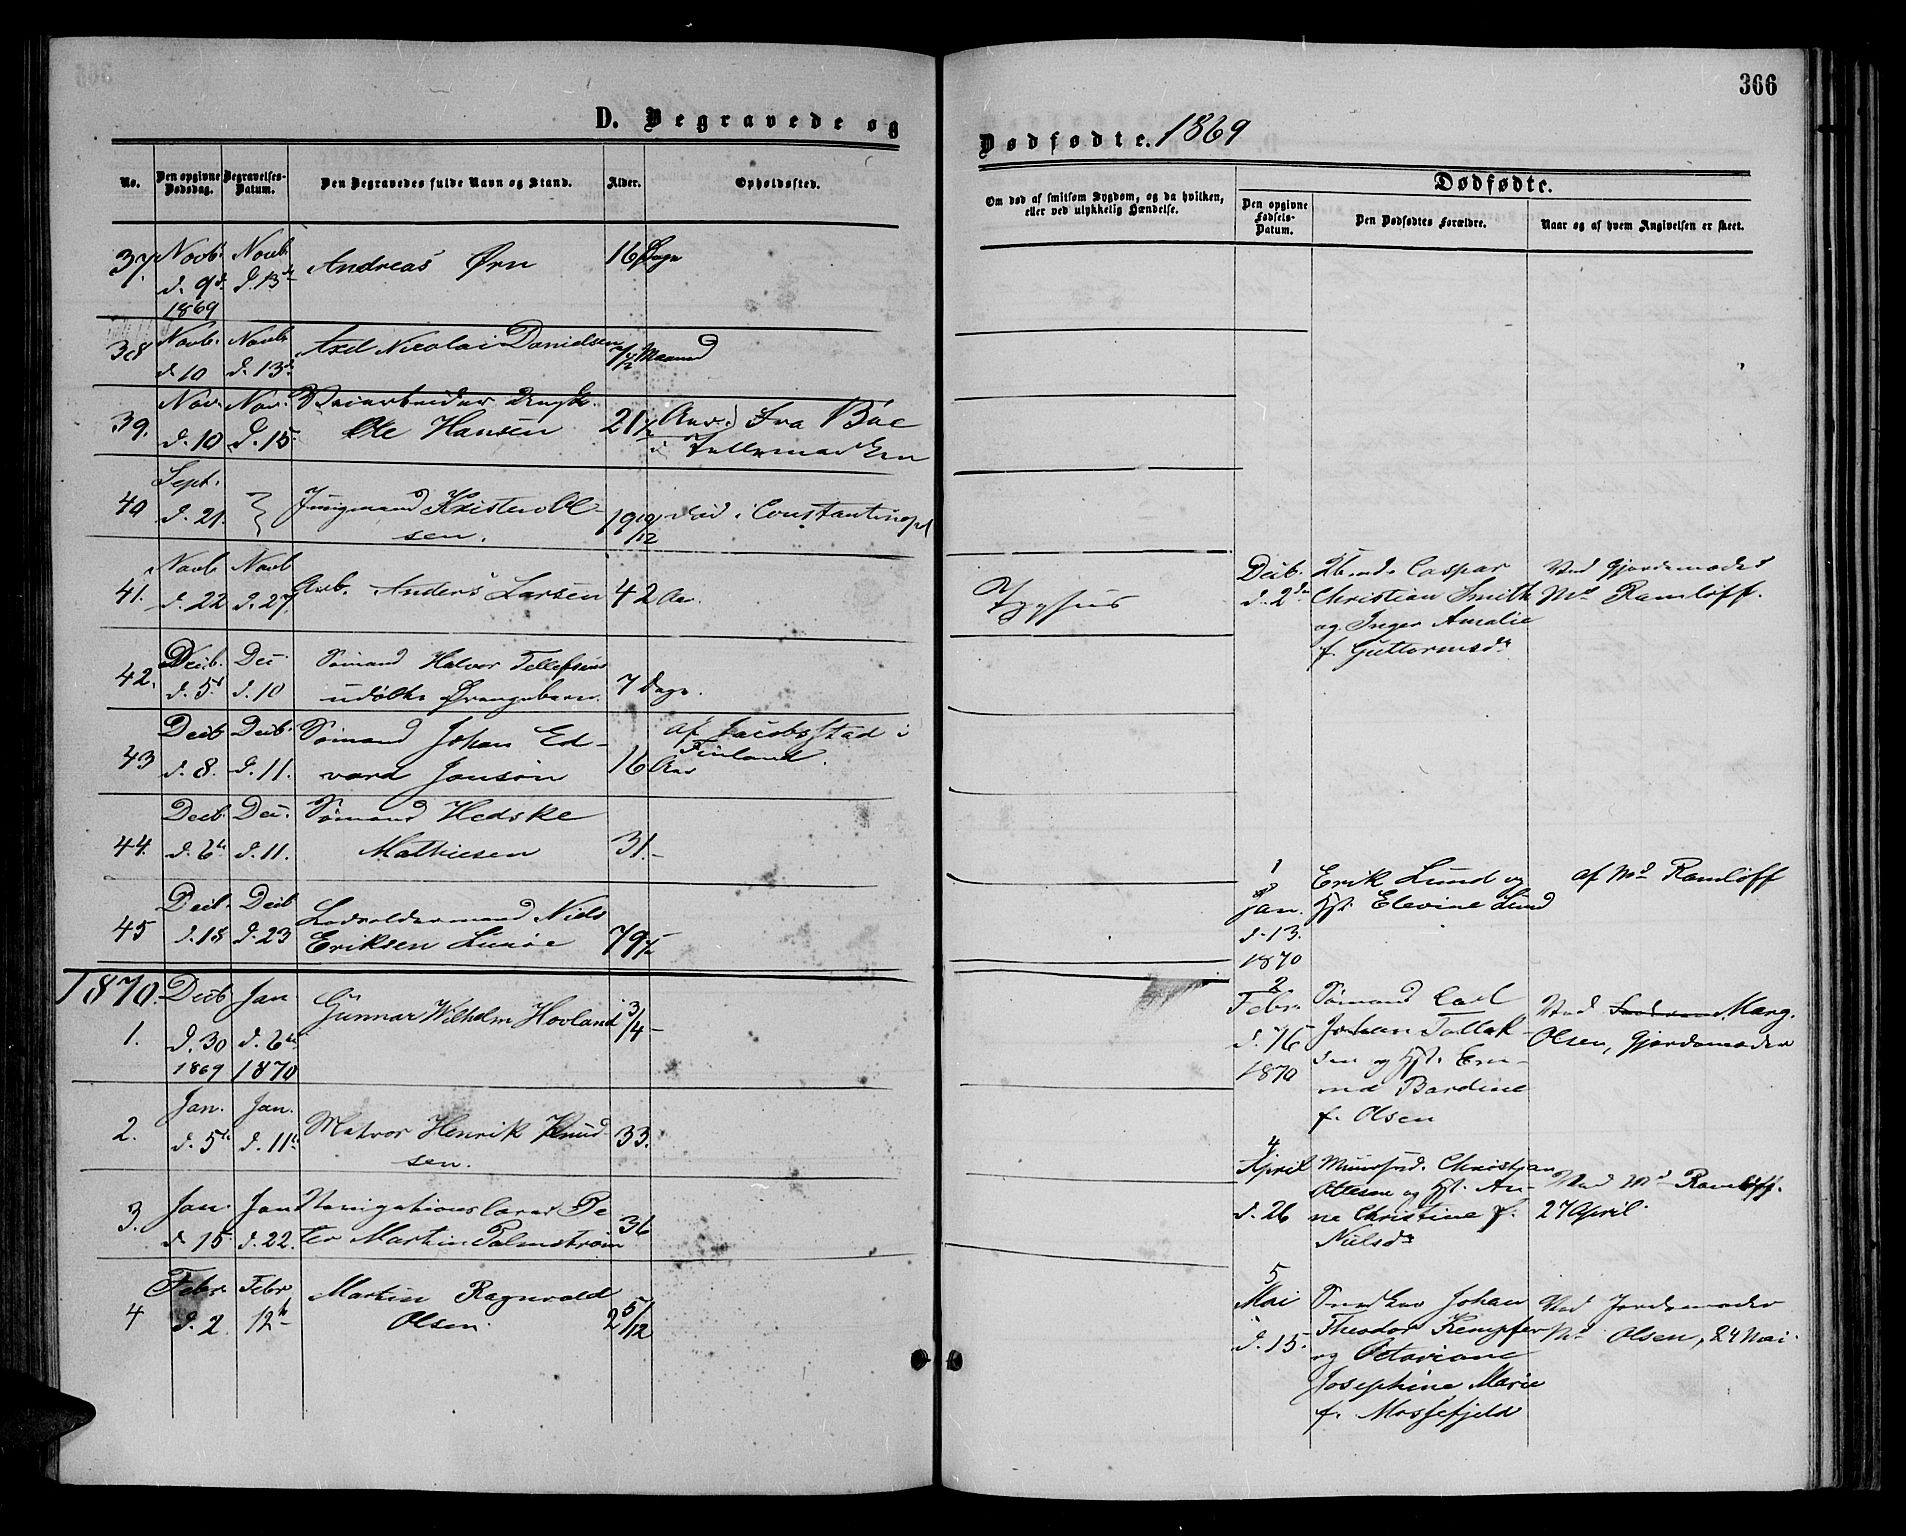 366
D. Begravede og
Dødfødte. 1869
No.
Den opgivne Dødsdag.
Begravelses-Datum.
Den Begravedes fulde Navn og Stand.
Alder.
Opholdssted.
Om død af smitsom Sygdom, og da hvilken,
eller ved ulykkelig Hændelse.
Dødfødte.
Den opgivne
Fødsels-
Datum.
Den Dødfødtes Forældre.
Naar og af hvem Angivelsen er skeet.
37 Novb. Novb. Andreas Ørn 16 Dage
d. 9d. d. 13d
1869
38 Novb. Novb. Axel Nicolai Danielsen Maaned
d. 10 d. 13d
39. Nov. Nov.
d. 10 d. 15. Ole Hansen 21 1/2 Aar. Fra Bøe
i Tellemarken
40 Sept. Jungmand Kristen Ol-
d. 21. sen. 19 10/12 død i Constantinopl
41. Novb Novb
d. 22 d. 27 Arb. Anders Larsen 42 Aar.
Typhus
42. Decb. Dec. Sømand Halvor Tellefsens
d. 5d d. 10 udøbte Drængebarn 7 Dage.
43 Decb Decb. Sømand Johan Ed- af Jacobsstad i
Finland.
d. 8. d. 11. vard Jansøn 16 Aar
44. Decb. Dec. Sømand Hedske
d. 6te d. 11. Mathiesen 31.-
45 Decb. Decb Lodsoldermand Niels
d. 18 d. 23 Eriksen Lunøe 79
1870. Decb Jan Gunnar Wilhelm Hovland 3/4 -
1. d. 30 d. 6te
1869 1870
2. Jan. Jan. Matros Henrik Knud-
d. 5te d. 11te sen. 33.
3. Jan Jan Navigationslærer Pe-
d 15 d. 22. ter Martin Palmstrøm 36
4 Febr. Febr. Martin Ragnvald
d. 2. 12te Olsen. 2 5/12
Decb. Caspar Ved Gjordemoder
d. 2den Christian Smith Md Ramløff.
og Inger Amalie
f. Guttormsdr
1
Jan. Erik Lund og af Md Ramløff
d. 13. Hst. Elevine Lund
1870
2
Febr. Sømand Carl Ved Marg.
d. 16 Johan Tallak- Olsen, Gjordemoder
1870 sen og Hst. Em-
ma Bardine
f. Olsen
4
April Muursvd. Christian Ved Md Ramløff.
Ottesen og Hst. An-
d. 26 ne Christine f. 27 April.
Nielsdr
5
Mai Snedker Johan Ved Jordemoder
d. 15. Theodor Kempfer Md Olsen, 24 Mai.
og Octaviane
Josephine Marie
f. Mossefjeld